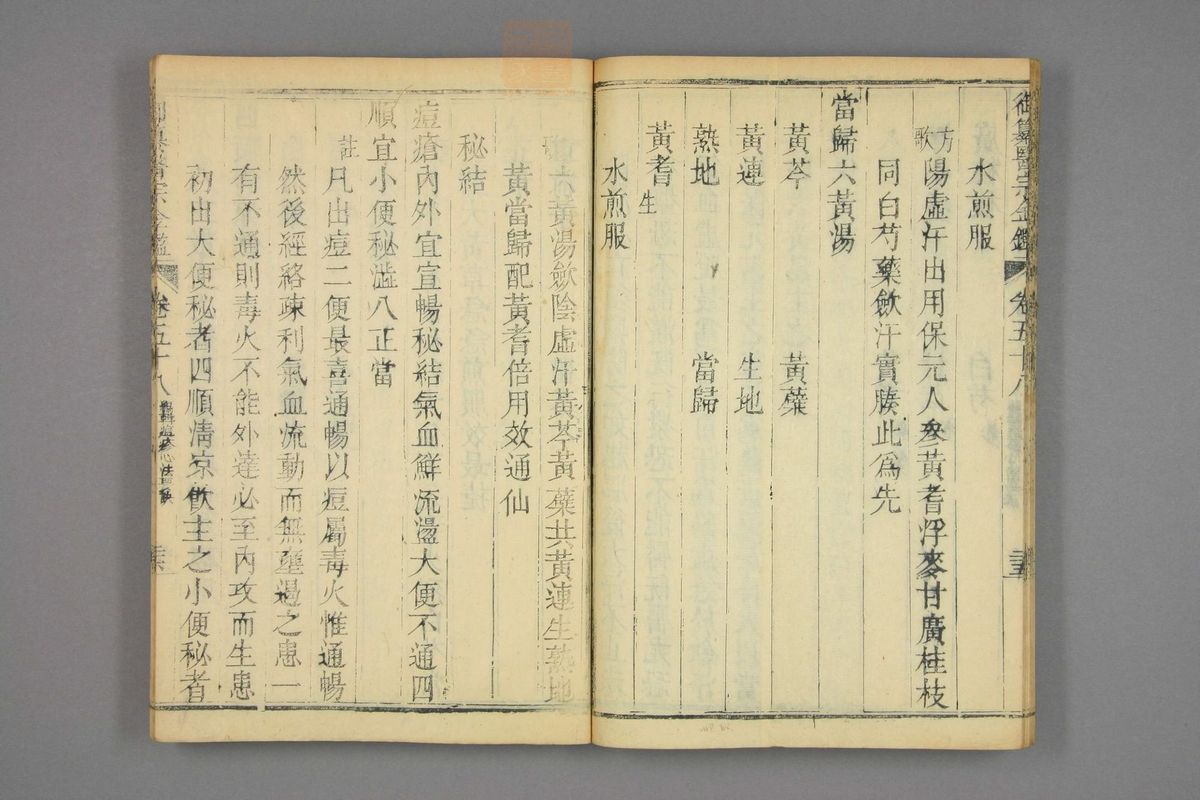 御纂醫宗金鑑 卷五十八
水煎服
方歌 陽虛汗出用保元人參黃耆浮麥甘廣桂枝
同白芍藥斂汗實腠此爲先
當歸六黃湯
黃芩 黃蘗
黃連 生地
熟地 當歸
黃耆 生
水煎服
黃湯斂陰虛汗黃芩黃蘗共黃連生熟地
黃當歸配黃耆倍用效通仙
秘結
痘瘡內外宜宣暢秘結氣血鮮流盪大便不通四
順宜小便秘澁八正當
註 凡出痘二便最喜通暢以痘屬毒火惟通暢
然後經絡疎利氣血流動而無壅遏之患一
有不通則毒火不能外達必至內攻而生患
初出大便秘者四順清凉飲主之小便秘者
御纂醫宗金鑑 卷五十八